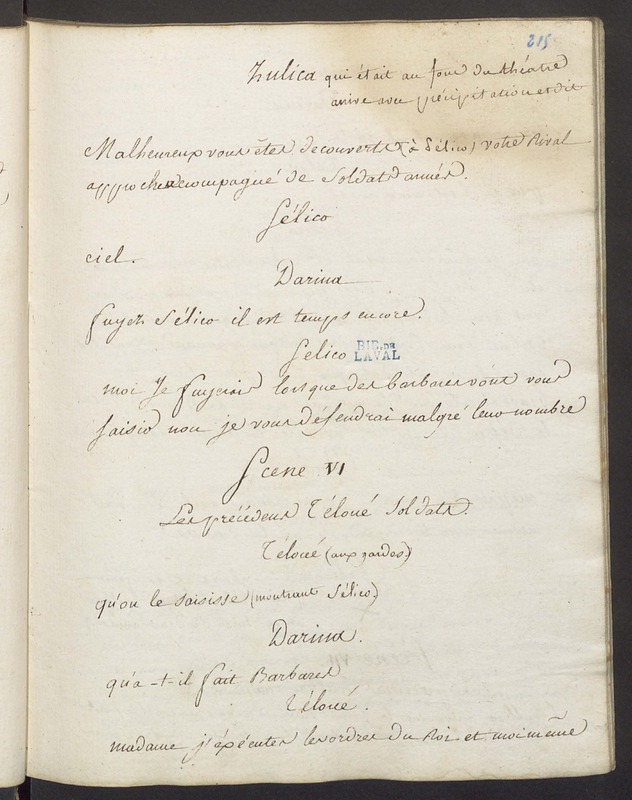 215
Zulica qui était au fond du théatre
arrive avec précipitation et dit
Malheureux vous êtes decouverts (à Sélico) votre Rival
approche accompagné de Soldats armés.
Sélico
ciel.
Darina
fuyez Sélico il est temps encore.
Selico
BIB. DE
LAVAL
moi Je fuyerais lorsque des barbares vont vous
saisir non je vous défendrai malgré leur nombre
Scene VI
Les précédens Téloué Soldats.
Téloué (aux gardes.)
qu'on le saisisse (montrant Sélico.)
Darina.
qu'a-t-il fait Barbares
Téloué.
madame j'éxécutes les ordres du Roi et moi même